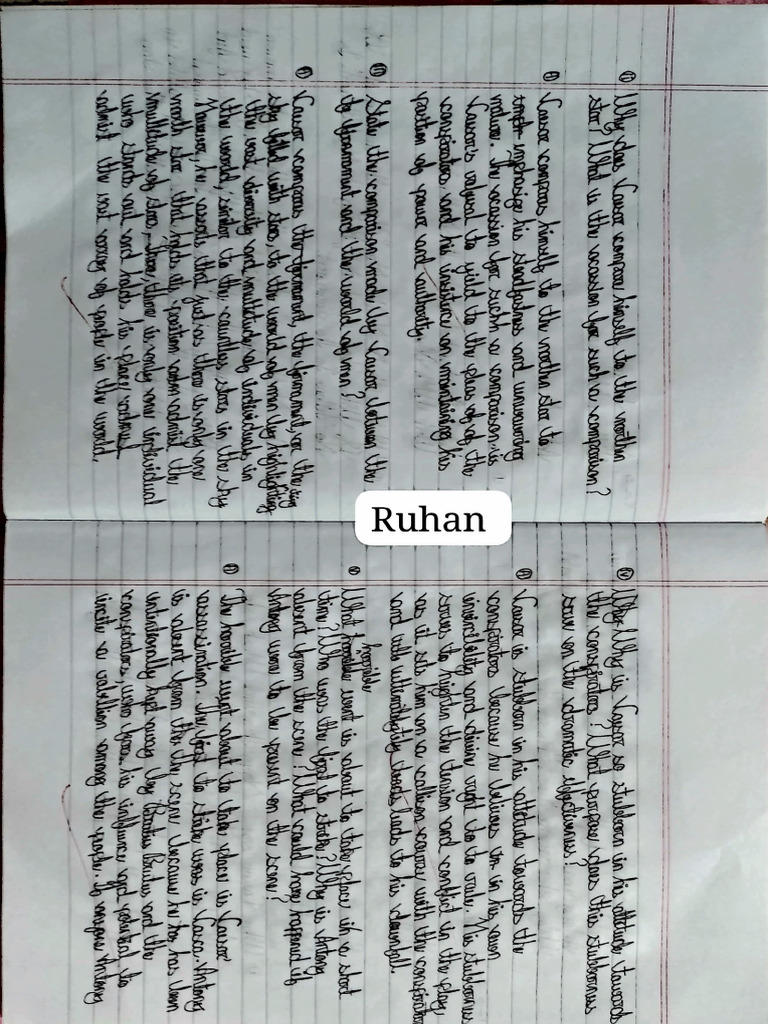 iii) Why does Caesar compare himself to the northen
star? What is the occassion for such a comparison?
A) Caesar compares himself to the northen star to
emphasize his steadfastness and unwavering
nature. The occassion for such a comparison is
Caesar's refusal to yield to the pleas of of the
conspirators and his insistence on maintaining his
position of power and authority.
iii) State the comparison made by Caesar between the
to firmament and the world of men?
A) Caesar compares the firmament, the firmament, or the
sky filled with stars, to the world of men by highlighting
the vast diversity and multitude of individuals in
the world, similar to the countless stars in the sky
However, he asserts that just as there is only one
north star that holds its position admist the
multitude of stars, there is only one individual
who stands out and holds his place
admist the vast array of people in the world.
Ruhan
iv) Why Why is Caesar so stubborn in his attitude towards
the conspirators? What purpose does this stubbornness
serve on the dramatic effectiveness?
A) Caesar is stubborn in his attitude towards the
conspirators because he believes in his own
invincibility and divine right to to rule. His stubbornness
serves to highten the tension and conflict in the play,
as it sets him on a collision course with the conspirators
and will ultimately leads to his downfall.
v) What horrible event is about to take place in a short
time? Who was the first to strike? Why is Antony
absent from the scene? What could have happened if
Antony were to be present on the scene?
A) The horrible event about to take place is Caesar'
assassination. The first to strike was is Casca. Antony
is absent from the the scene because he has been
intentionally kept away by Brutus and the
conspirators, who fear his influence and potential to
incite a rebellion among the people. If Antony